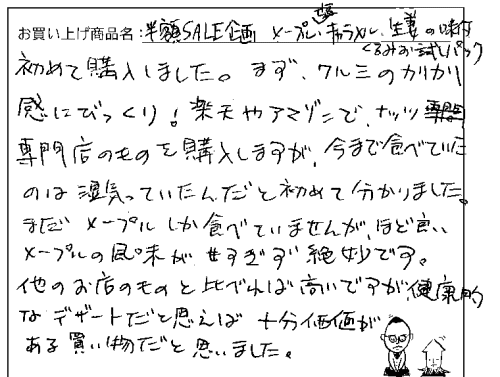 お買い上げ商品名：半額SALE企画 メープル、塩キャラメル、生姜の味付
くるみお試しパック
初めて購入しました。まず、クルミのカリカリ
感にびっくり！楽天やアマゾンで、ナッツ
専門店のものを購入しますが、今まで食べていた
のは湿気っていたんだと初めて分かりました。
まだ メープルしか食べていませんが、ほど良い
メープルの風味が甘すぎず絶妙です。
他のお店のものと比べれば高いですが健康的
なデザートだと思えば 十分価値が
ある買い物だと思いました。